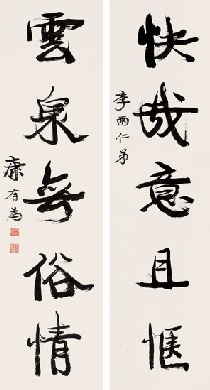 快哉意且愜
季雨仁弟
雲泉無俗情
康有為